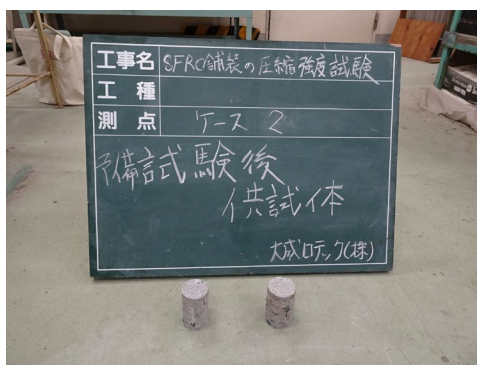 工事名 SFRC舗装の圧縮強度試験
工種
測点 ケース 2
予備試験後
供試体
大成ロテック(株)